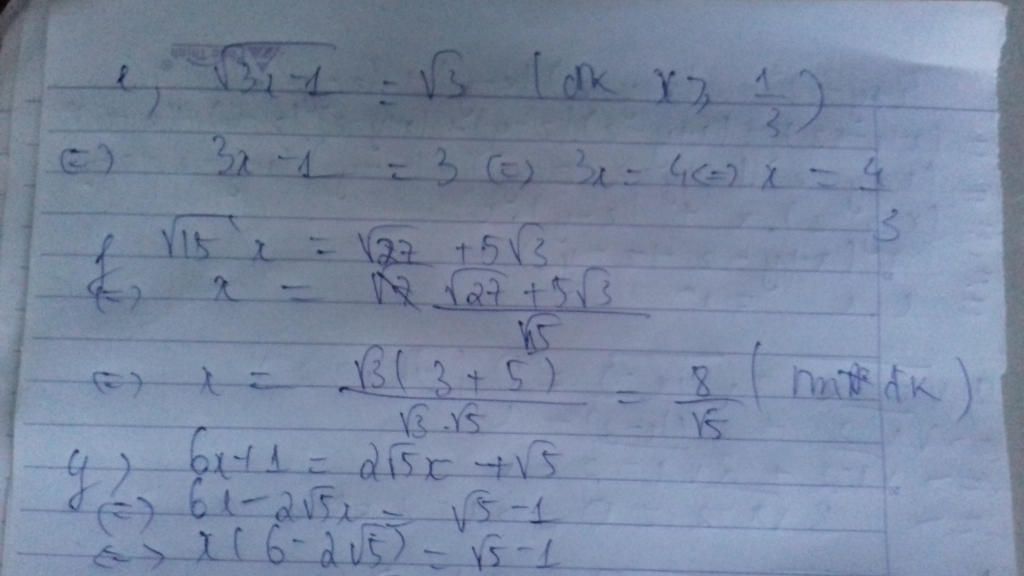 e, √(3x-1) = √3 (đk x ≥ 1/3)
<=> 3x - 1 = 3 <=> 3x = 4 <=> x = 4/3
f √15 x = √27 + 5√3
<=> x = (√27 + 5√3)/√15
<=> x = √3(3 + 5)/(√3.√5) = 8/√5 ( đk)
g) 6x+1 = 2√5x + √5
<=> 6x - 2√5x = √5 - 1
<=> x(6 - 2√5) = √5 - 1